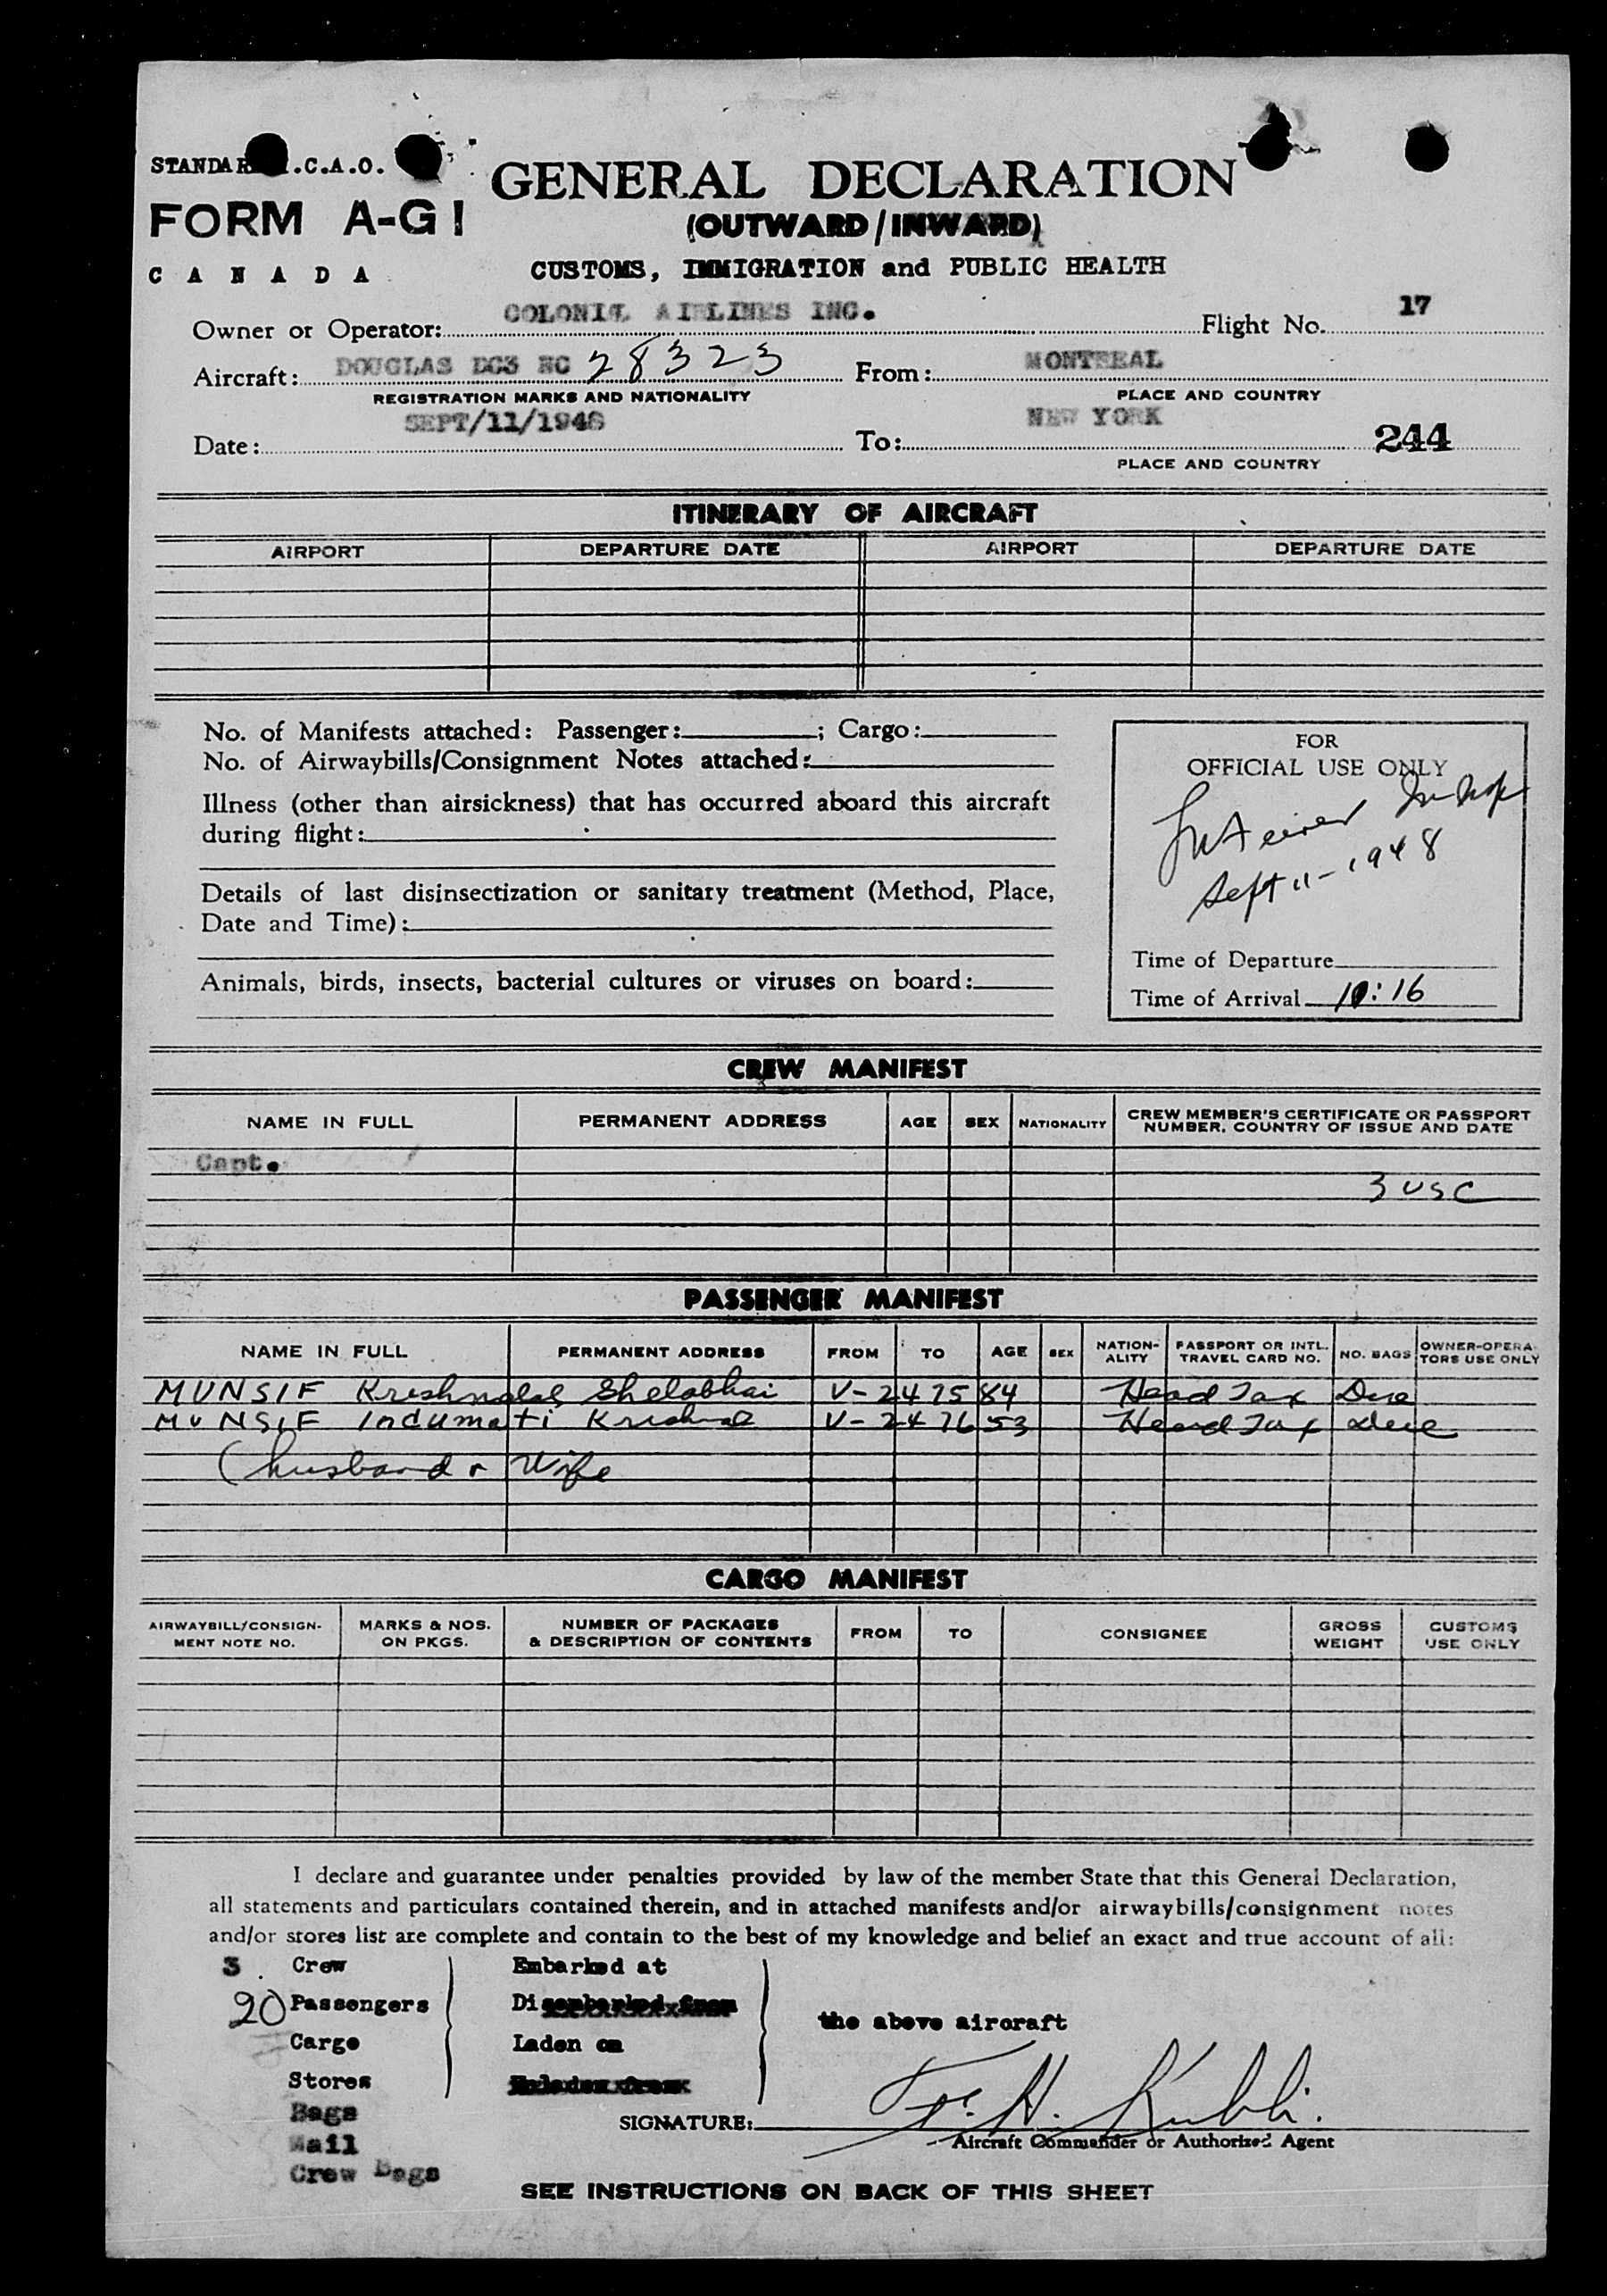 STANDAR .C.A.O.
FORM A-G1
CANADA
GENERAL DECLARATION
(OUTWARD/INWARD)
CUSTOMS, IMMIGRATION and PUBLIC HEALTH
Owner or Operator: COLONIAL AIRLINES INC. Flight No. 17
Aircraft: DOUGLAS DC3 NC 28323 From: MONTREAL
REGISTRATION MARKS AND NATIONALITY PLACE AND COUNTRY
Date: SEPT/11/1948 To: NEW YORK 244
PLACE AND COUNTRY
ITINERARY OF AIRCRAFT
AIRPORT DEPARTURE DATE AIRPORT DEPARTURE DATE
No. of Manifests attached: Passenger: ; Cargo:
No. of Airwaybills/Consignment Notes attached:
Illness (other than airsickness) that has occurred aboard this aircraft
during flight:
Details of last disinsectization or sanitary treatment (Method, Place,
Date and Time):
Animals, birds, insects, bacterial cultures or viruses on board:
FOR
OFFICIAL USE ONLY
Sept 11-1948
Time of Departure
Time of Arrival 10:16
CREW MANIFEST
NAME IN FULL PERMANENT ADDRESS AGE SEX NATIONALITY CREW MEMBER'S CERTIFICATE OR PASSPORT NUMBER, COUNTRY OF ISSUE AND DATE
Capt.
3 USC
PASSENGER MANIFEST
NAME IN FULL PERMANENT ADDRESS FROM TO AGE SEX NATION-ALITY PASSPORT OR INTL. TRAVEL CARD NO. NO. BAGS OWNER-OPERA-TORS USE ONLY
MUNSIF Krishnalal Shelabhai V-247584 Head Tax Due
MUNSIF Indumati Krishnal V-247653 Head Tax Due
(husband & Wife
CARGO MANIFEST
AIRWAYBILL/CONSIGN-MENT NOTE NO. MARKS & NOS. ON PKGS. NUMBER OF PACKAGES & DESCRIPTION OF CONTENTS FROM TO CONSIGNEE GROSS WEIGHT CUSTOMS USE ONLY
I declare and guarantee under penalties provided by law of the member State that this General Declaration,
all statements and particulars contained therein, and in attached manifests and/or airwaybills/consignment notes
and/or stores list are complete and contain to the best of my knowledge and belief an exact and true account of all:
3 Crew Embarked at
20 Passengers Disembarked from
the above aircraft
Cargo Laden on
Stores Unladen from
Bags
SIGNATURE: F. H. Kubli.
Mail
Aircraft Commander or Authorized Agent
Crew Bags
SEE INSTRUCTIONS ON BACK OF THIS SHEET